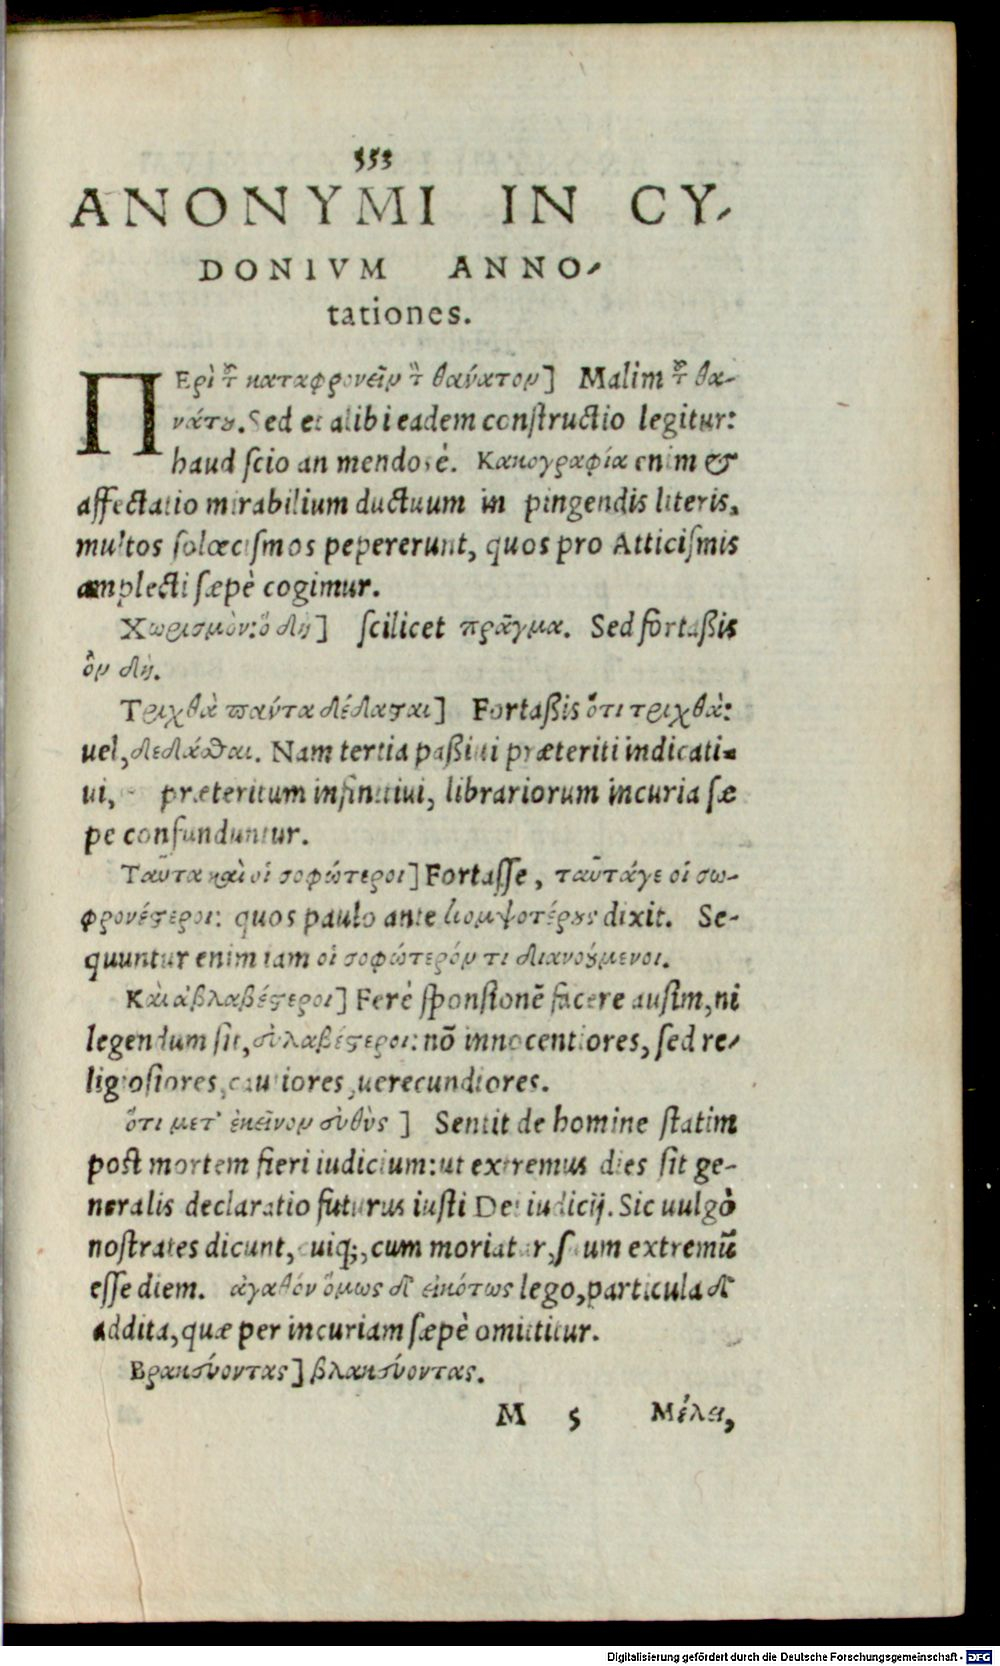 353
ANONYMI IN CY-
DONIVM ANNO-
tationes.
ΠΕρὶ τ͂ καταφρονεῖν τ̀ θανάτον] Malim τ͂ θα-
νάτȣ. Sed et alibi eadem constructio legitur:
haud scio an mendosè. Κακογραφία enim &
affectatio mirabilium ductuum in pingendis literis,
multos solœcismos pepererunt, quos pro Atticismis
amplecti sæpè cogimur.
Χωρισμὸν: ὁ δὴ] scilicet πρᾶγμα. Sed fortaßis
ὃν δὴ.
Τριχθὰ πάντα δέδασται] Fortaßis ὅτι τριχθὰ:
uel, δεδάσθαι. Nam tertia paßiui præteriti indicati-
ui, præteritum infinitiui, librariorum incuria sæ
pe confunduntur.
Ταῦτα καὶ οἱ σοφώτεροι] Fortasse, ταῦτάγε οἱ σω-
φρονέστεροι: quos paulo ante κομψοτέρȣς dixit. Se-
quuntur enim iam οἱ σοφώτερόν τι διανοȣ́μενοι.
Καὶ ἀβλαβέστεροι] Ferè sponsionē facere ausim, ni
legendum sit, εὐλαβέστεροι: nō innocentiores, sed re-
ligiosiores, cautiores, uerecundiores.
ὅτι μετ' ἐκεῖνον εὐθὺς] Sentit de homine statim
post mortem fieri iudicium: ut extremus dies sit ge-
neralis declaratio futurus iusti Dei iudicij. Sic uulgò
nostrates dicunt, cuiq;, cum moriatur, suum extremū
esse diem. ἀγαθόν ὅμως δ' εἰκότως lego, particula δ'
addita, quæ per incuriam sæpè omittitur.
Βρακεύοντας] βλακεύοντας.
M 5 Μέλει,
Digitalisierung gefördert durch die Deutsche Forschungsgemeinschaft - DFG